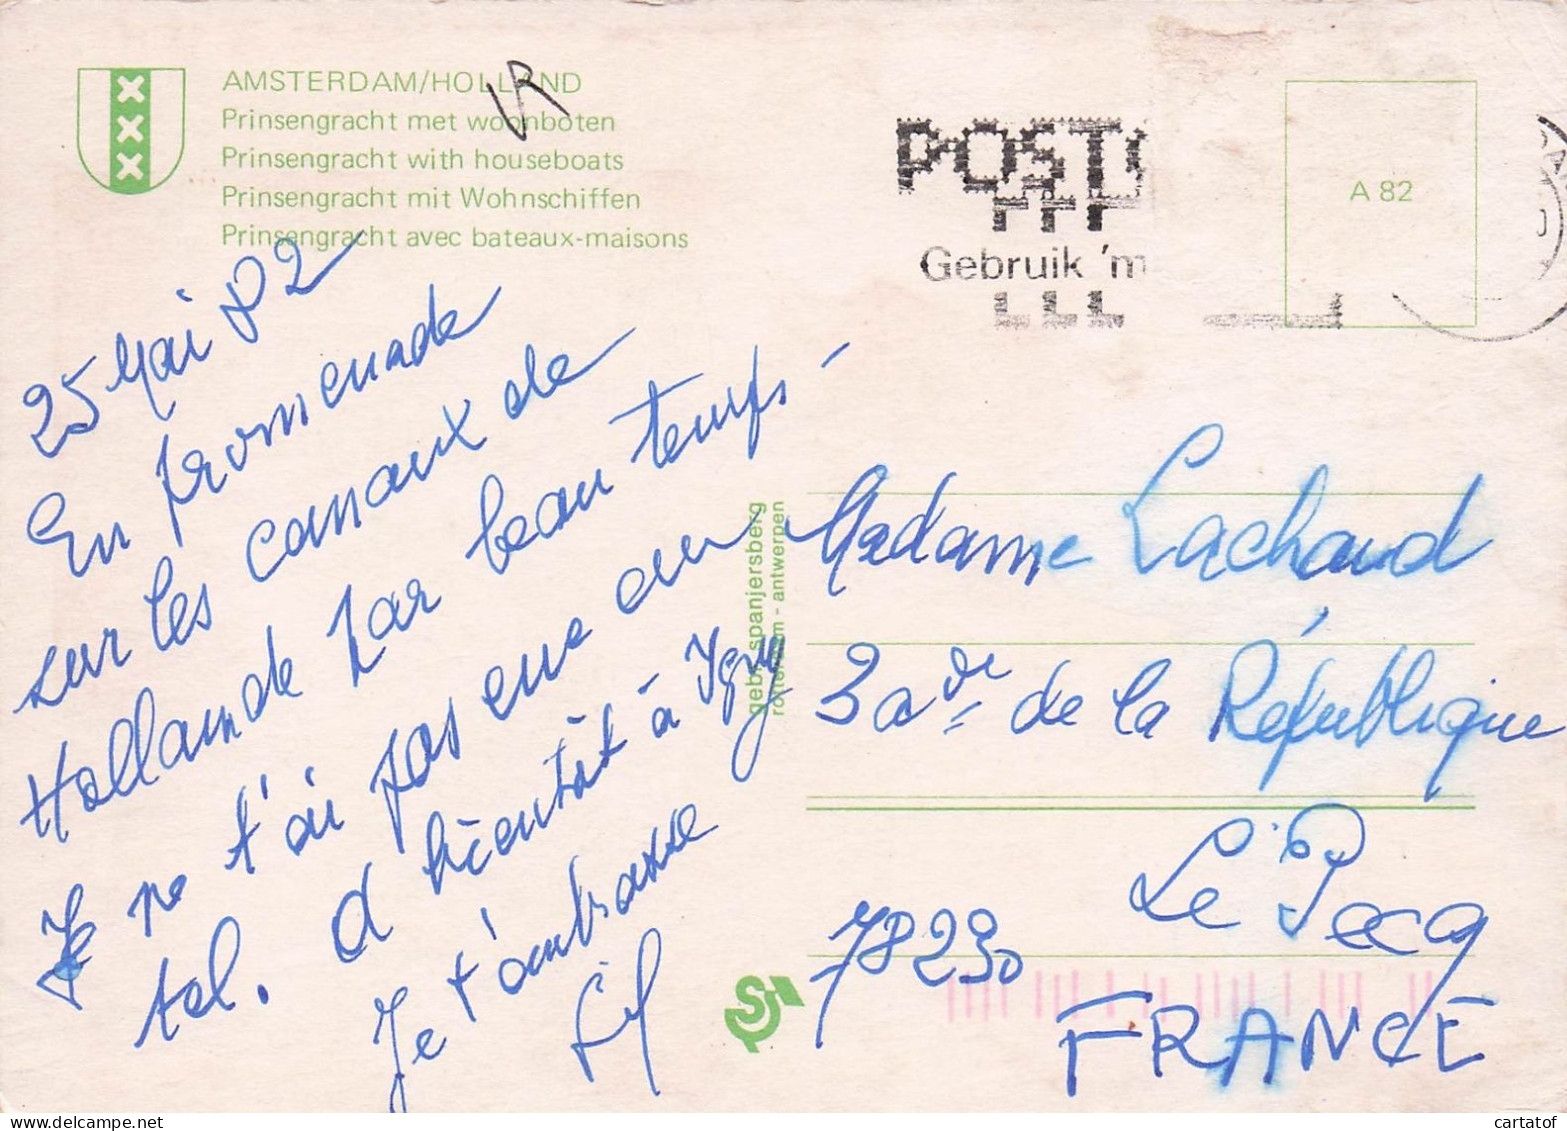 AMSTERDAM/HOLLAND
Prinsengracht met woonboten
Prinsengracht with houseboats
Prinsengracht mit Wohnschiffen
Prinsengracht avec bateaux-maisons
POSTC
Gebruik 'm
A 82
25 Mai 82
En promenade
sur les canaux de
Hollande par beau temps -
Je ne t'ai pas eue au
tel. A bientôt à Igny
Je t'embrasse
gebr. spanjersberg
rotterdam - antwerpen
Madame Lachaud
3 a de la République
Le Pecq
78230
FRANCE